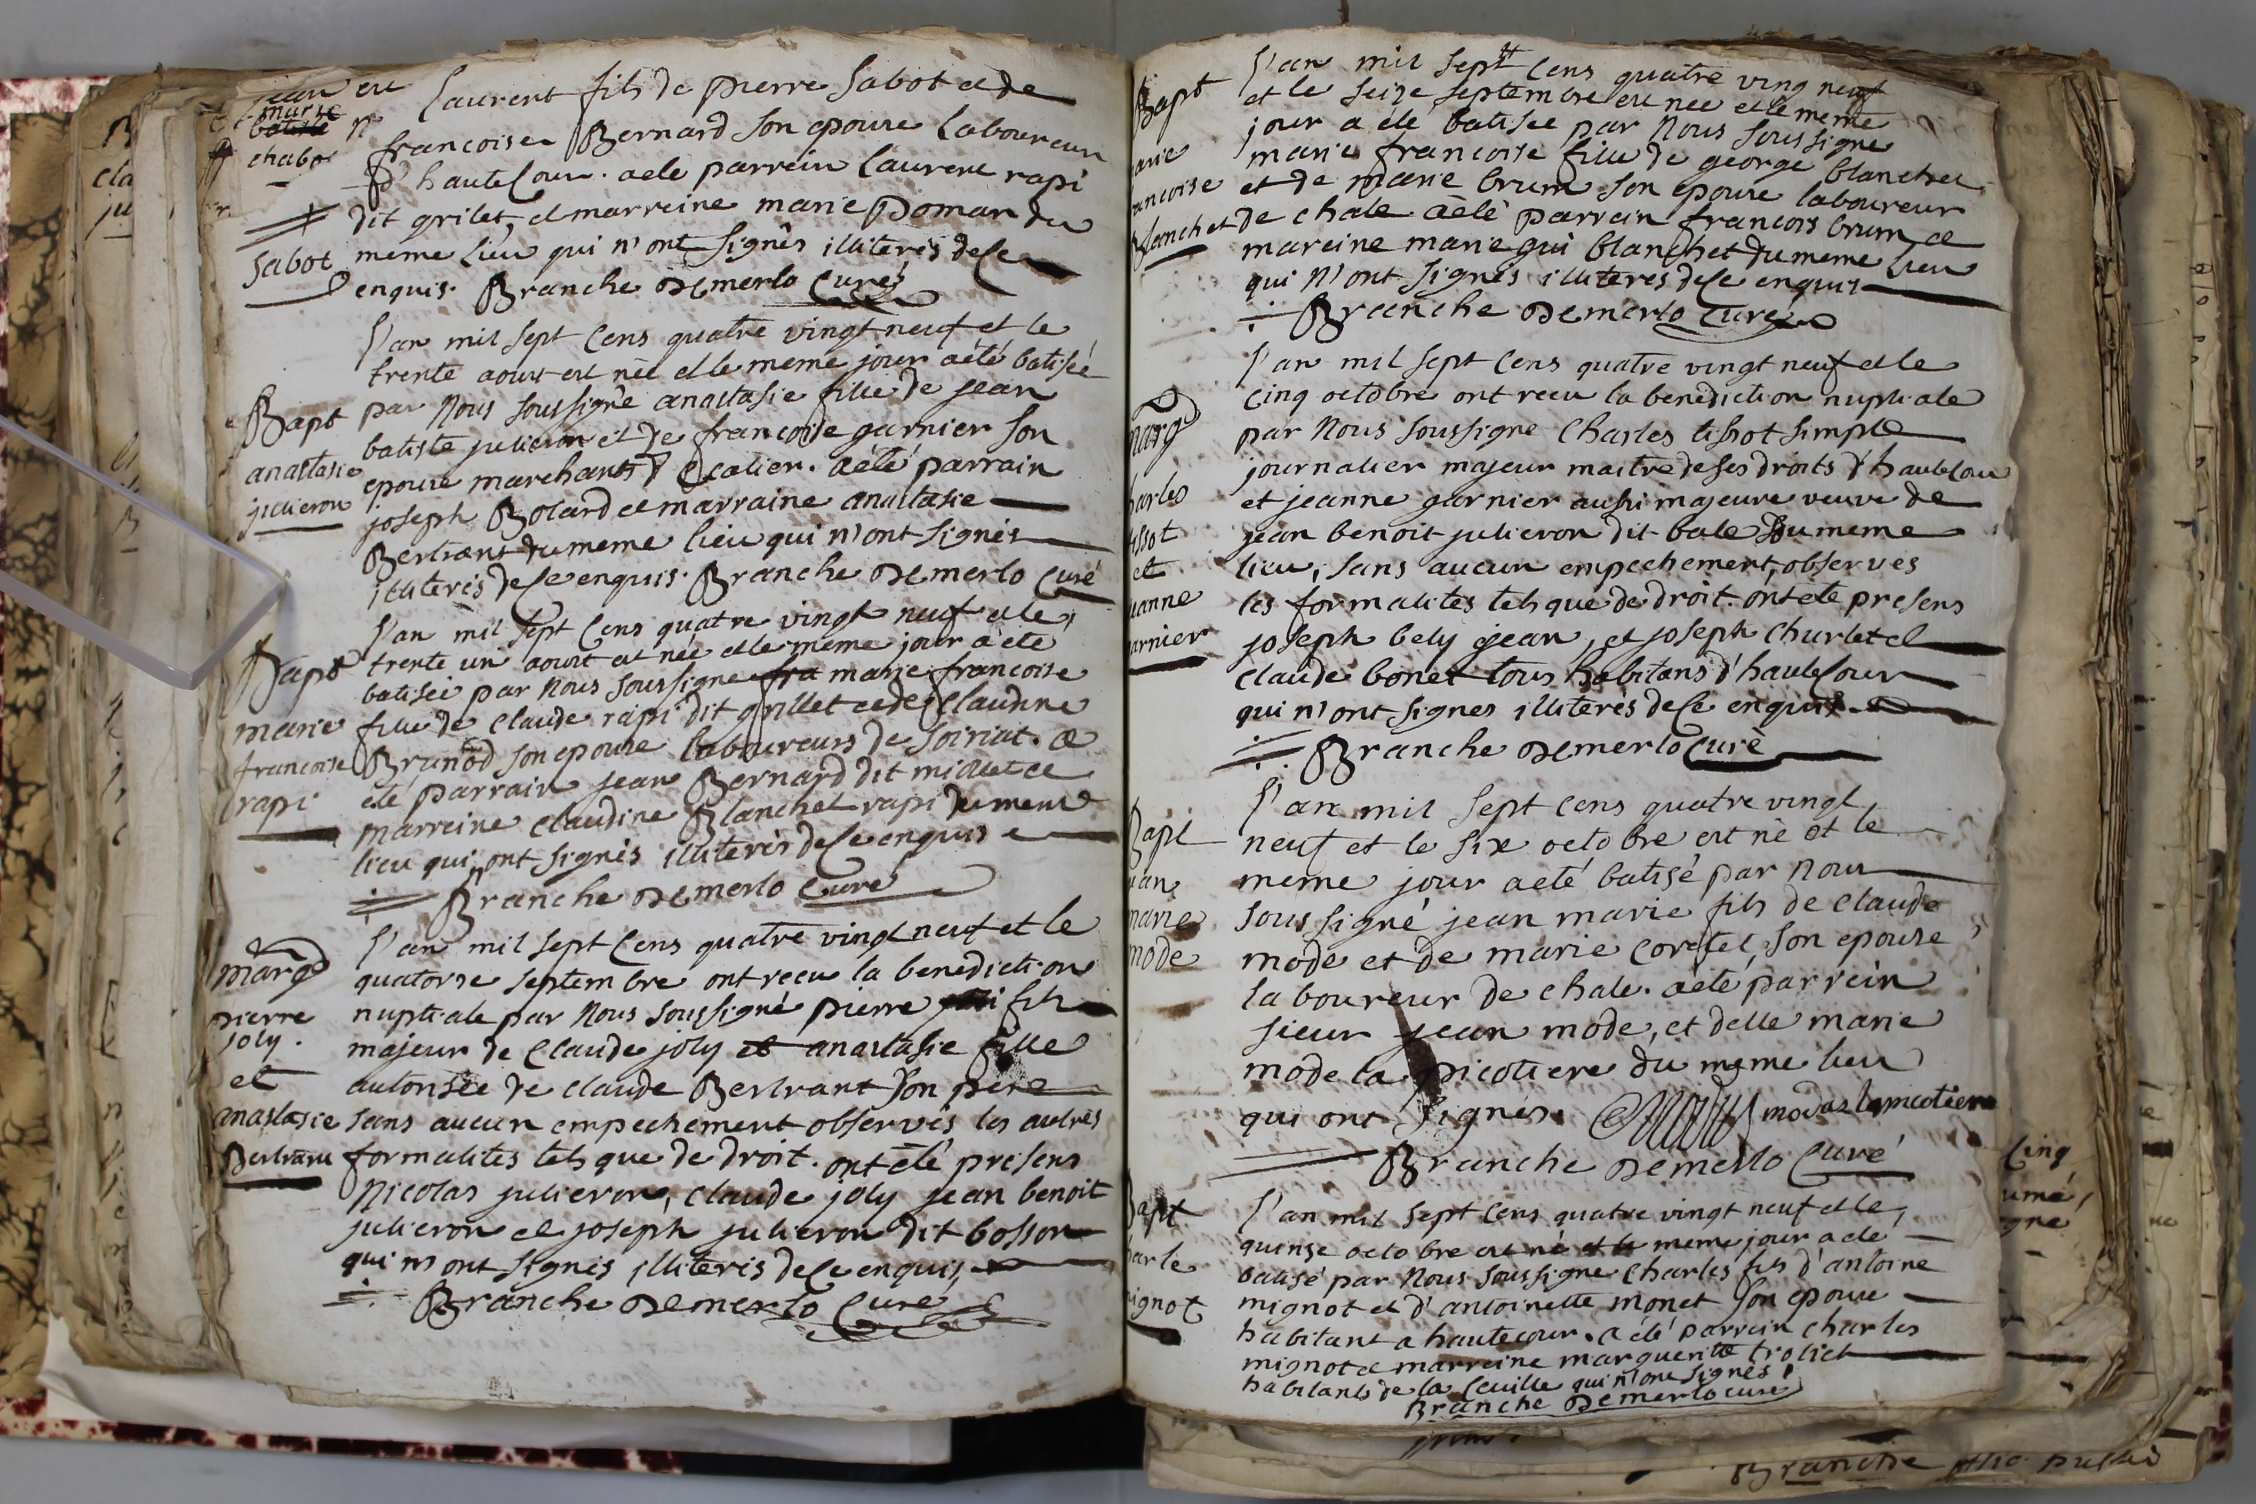 Laurent fils de pierre Sabot et de
francoise Bernard son epouse Laboureur
d'hauteCour. a ete parrein Laurent rapi
dit grilet, et marreine marie Pomar du
Sabot
meme Lieu qui n'ont signés illiterés de Ce
enquis. Branche Demerlo Curé
L'an mil sept Cens quatre vingt neuf et le
trente aoust est néé et le meme jour a été batiséé
Bapt
par Nous soussigné anastasie fille de jean
batiste julieron et de francoise garnier son
anastasie
epouse marchants d'Escalier. a été parrain
julieron
joseph Bolard et marraine anastasie
Bertrant du meme lieu qui n'ont signés
illiterés de Ce enquis. Branche Demerlo Curé
L'an mil sept Cens quatre vingt neuf et le
Bapt
trente un aoust est néé et le meme jour a été
batiséé par nous soussigné fra marie francoise
marie
fille de Claude rapi dit grillet et de Claudine
francoise
Brunod son epouse laboureurs de Soiriat. a
rapi
eté parrain jean Bernard dit miollet et
marreine Claudine Blanchet rapi du meme
lieu qui n'ont signés illiterés de Ce enquis
Branche Demerlo Curé
L'an mil sept Cens quatre vingt neuf et le
mârg
quatorse septembre ont recu la benediction
pierre
nuptiale par Nous soussigné pierre fils
joly.
majeur de Claude joly et anastasie fille
et
autorisée de claude Bertrant son père
anastasie
sans aucun empechement observés les autres
Bertrant
formalités tels que de droit. ont été presens
Nicolas julieron, Claude joly jean benoit
julieron et joseph julieron dit bosson
qui n'ont signés illiterés de Ce enquis,
Branche Demerlo Curé
L'an mil sept Cens quatre ving neuf
Bapt
et le seize septembre est néé et le meme
jour a été batisée par Nous soussigné
marie francoise fille de george blanchet
et de marie brun son epouse laboureur
Blanchet
de chale a èté parrain francois brun, et
mareine marie gui blanchet du meme lieu
qui N'ont signés illiterés de Ce enquis
Branche Demerlo Curé
L'an mil sept Cens quatre vingt neuf et le
Cinq octobre ont recu la benediction nuptiale
marg
par Nous soussigné Charles tissot simple
journalier majeur maitre de ses droits d'hauteCour
harles
et jeanne garnier aussi majeure veuve de
issot
jean benoit julieron dit bale du meme
et
lieu, sans aucun empechement, observés
eanne
les formalités tels que de droit. ont eté presens
arnier
joseph bely jean, et joseph Churlet et
Claude bonet tous habitans d'hauteCour
qui n'ont signés illiterés de Ce enquis
Branche Demerlo Curé
L'an mil sept Cens quatre vingt
Bapt
neuf et le six octobre est né et le
ean
meme jour a eté batisé par Nous
marie
soussigné jean marie fils de Claude
mode
mode et de marie Coretel, son epouse
laboureur de chale. a été parrein
sieur jean mode, et delle marie
mode la picotiere du meme lieu
qui ont signés. modas lapicotiere
Branche Demerlo Curé
Bapt
L'an mil sept Cens quatre vingt neuf et le
quinse octobre est né et le meme jour a eté
harle
batisé par Nous soussigné Charles fils d'antoine
mignot
mignot et d'antoinette monet son epouse
habitant a hautecour. a été parrein Charles
mignot et marreine marguerite troliet
habitants de la Ceuille qui n'ont signés
Branche Demerlo curé